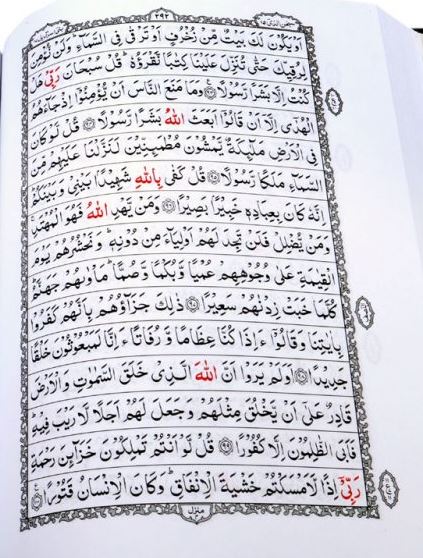 سبحن الذی ١٥
٢٩٢
اَوْ يَكُوْنَ لَكَ بَيْتٌ مِّنْ زُخْرُفٍ اَوْ تَرْقٰى فِي السَّمَآءِ ؕ وَلَنْ نُّؤْمِنَ
لِرُقِيِّكَ حَتّٰى تُنَزِّلَ عَلَيْنَا كِتٰبًا نَّقْرَؤُهٗ ؕ قُلْ سُبْحَانَ رَبِّيْ هَلْ
كُنْتُ اِلَّا بَشَرًا رَّسُوْلًا ۞ وَمَا مَنَعَ النَّاسَ اَنْ يُّؤْمِنُوْۤا اِذْ جَآءَهُمُ
الْهُدٰۤى اِلَّاۤ اَنْ قَالُوْۤا اَبَعَثَ اللّٰهُ بَشَرًا رَّسُوْلًا ۞ قُلْ لَّوْ كَانَ
فِي الْاَرْضِ مَلٰٓئِكَةٌ يَّمْشُوْنَ مُطْمَئِنِّيْنَ لَنَزَّلْنَا عَلَيْهِمْ مِّنَ
السَّمَآءِ مَلَكًا رَّسُوْلًا ۞ قُلْ كَفٰى بِاللّٰهِ شَهِيْدًۢا بَيْنِيْ وَبَيْنَكُمْ ؕ
اِنَّهٗ كَانَ بِعِبَادِهٖ خَبِيْرًۢا بَصِيْرًا ۞ وَمَنْ يَّهْدِ اللّٰهُ فَهُوَ الْمُهْتَدِ ۚ
وَمَنْ يُّضْلِلْ فَلَنْ تَجِدَ لَهُمْ اَوْلِيَآءَ مِنْ دُوْنِهٖ ؕ وَنَحْشُرُهُمْ يَوْمَ
الْقِيٰمَةِ عَلٰى وُجُوْهِهِمْ عُمْيًا وَّبُكْمًا وَّصُمًّا ؕ مَاْوٰىهُمْ جَهَنَّمُ ؕ
كُلَّمَا خَبَتْ زِدْنٰهُمْ سَعِيْرًا ۞ ذٰلِكَ جَزَآؤُهُمْ بِاَنَّهُمْ كَفَرُوْا
بِاٰيٰتِنَا وَقَالُوْۤا ءَاِذَا كُنَّا عِظَامًا وَّرُفَاتًا ءَاِنَّا لَمَبْعُوْثُوْنَ خَلْقًا
جَدِيْدًا ۞ اَوَلَمْ يَرَوْا اَنَّ اللّٰهَ الَّذِيْ خَلَقَ السَّمٰوٰتِ وَالْاَرْضَ
قَادِرٌ عَلٰۤى اَنْ يَّخْلُقَ مِثْلَهُمْ وَجَعَلَ لَهُمْ اَجَلًا لَّا رَيْبَ فِيْهِ ؕ
فَاَبَى الظّٰلِمُوْنَ اِلَّا كُفُوْرًا ۞ قُلْ لَّوْ اَنْتُمْ تَمْلِكُوْنَ خَزَآئِنَ رَحْمَةِ
رَبِّيْۤ اِذًا لَّاَمْسَكْتُمْ خَشْيَةَ الْاِنْفَاقِ ؕ وَكَانَ الْاِنْسَانُ قَتُوْرًا ۞
منزل